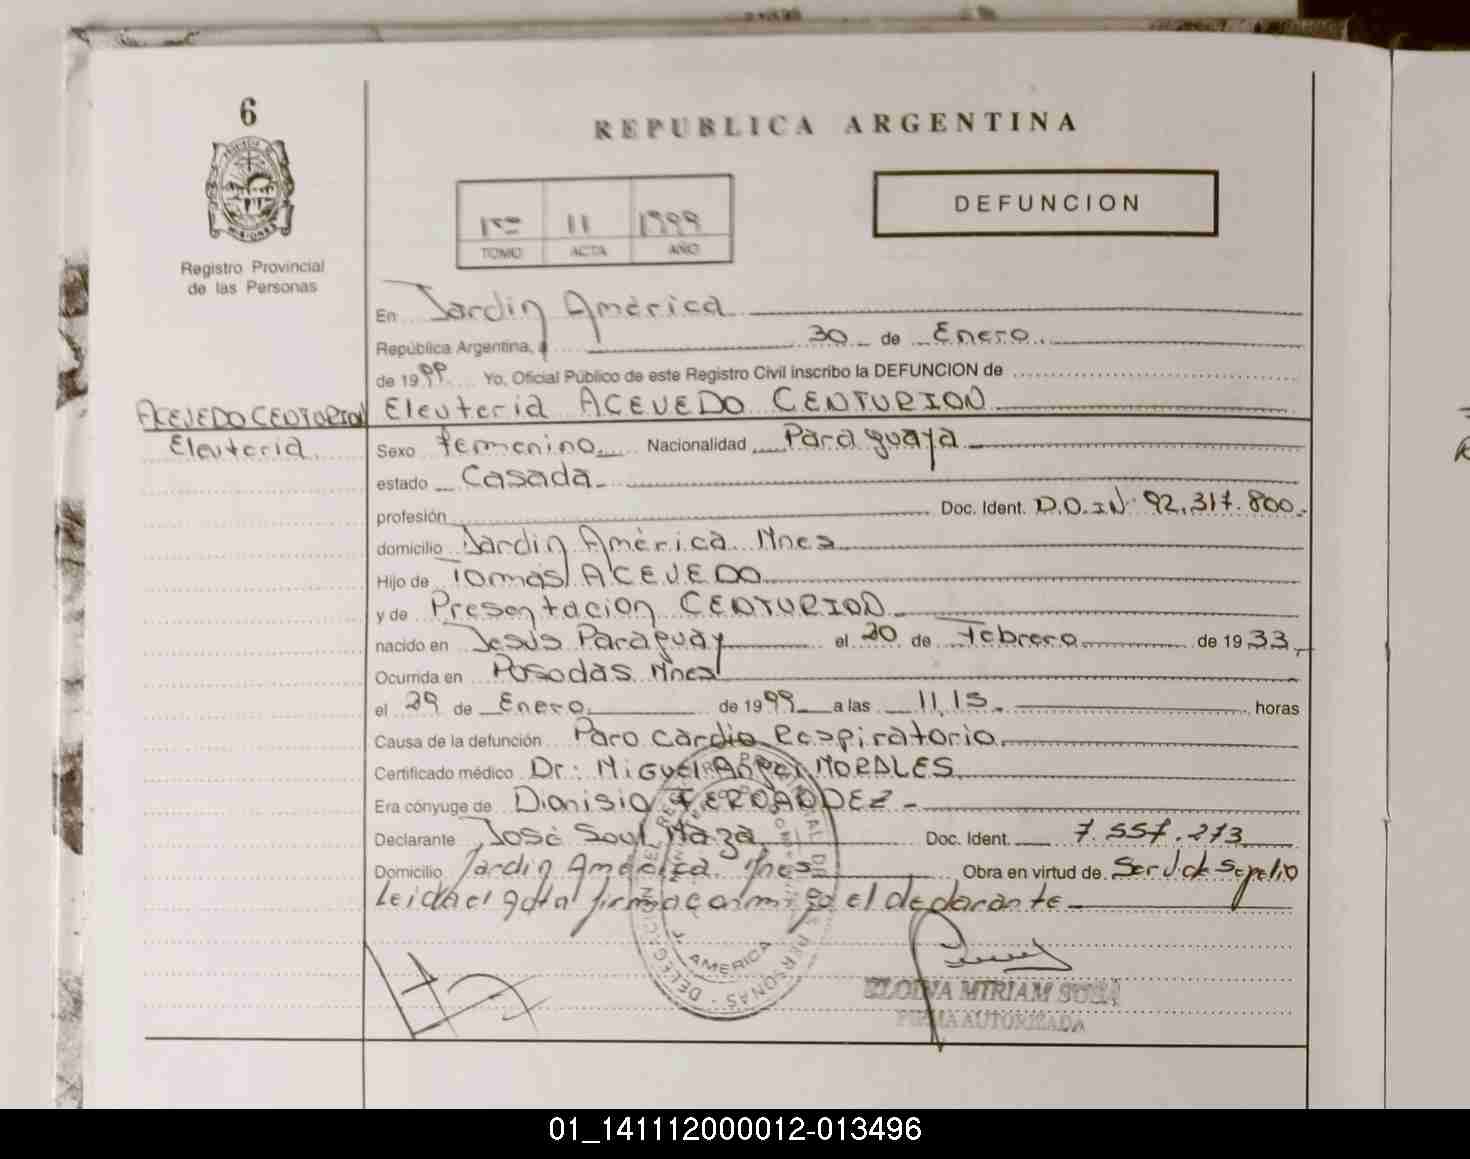 6
REPUBLICA ARGENTINA
1ro 11 1999
TOMO ACTA AÑO
DEFUNCION
Registro Provincial
de las Personas
En Jardin América
República Argentina, a 30 de Enero
de 1999 Yo, Oficial Público de este Registro Civil inscribo la DEFUNCION de
ACEVEDO CENTURION
Eleuteria
Eleuteria ACEVEDO CENTURION
Sexo femenino Nacionalidad Paraguaya
estado Casada
profesión Doc. Ident. 92.317.800
domicilio Jardin América Mnes
Hijo de Tomás ACEVEDO
y de Presentacion CENTURION
nacido en Jesús Paraguay el 20 de Febrero de 1933
Ocurrida en Posadas Mnes
el 29 de Enero de 1999 a las 11,15 horas
Causa de la defunción Paro Cardio Respiratorio
Certificado médico Dr: Miguel Angel MORALES
Era cónyuge de Dionisio FERNANDEZ
Declarante José Saul Maza Doc. Ident. 7.557.273
Domicilio Jardin América Mnes Obra en virtud de Serv de Sepelio
Leida el acta firma conmigo el declarante
AMERICA
ELODIA MIRIAM SOSA
FIRMA AUTORIZADA
01_141112000012-013496